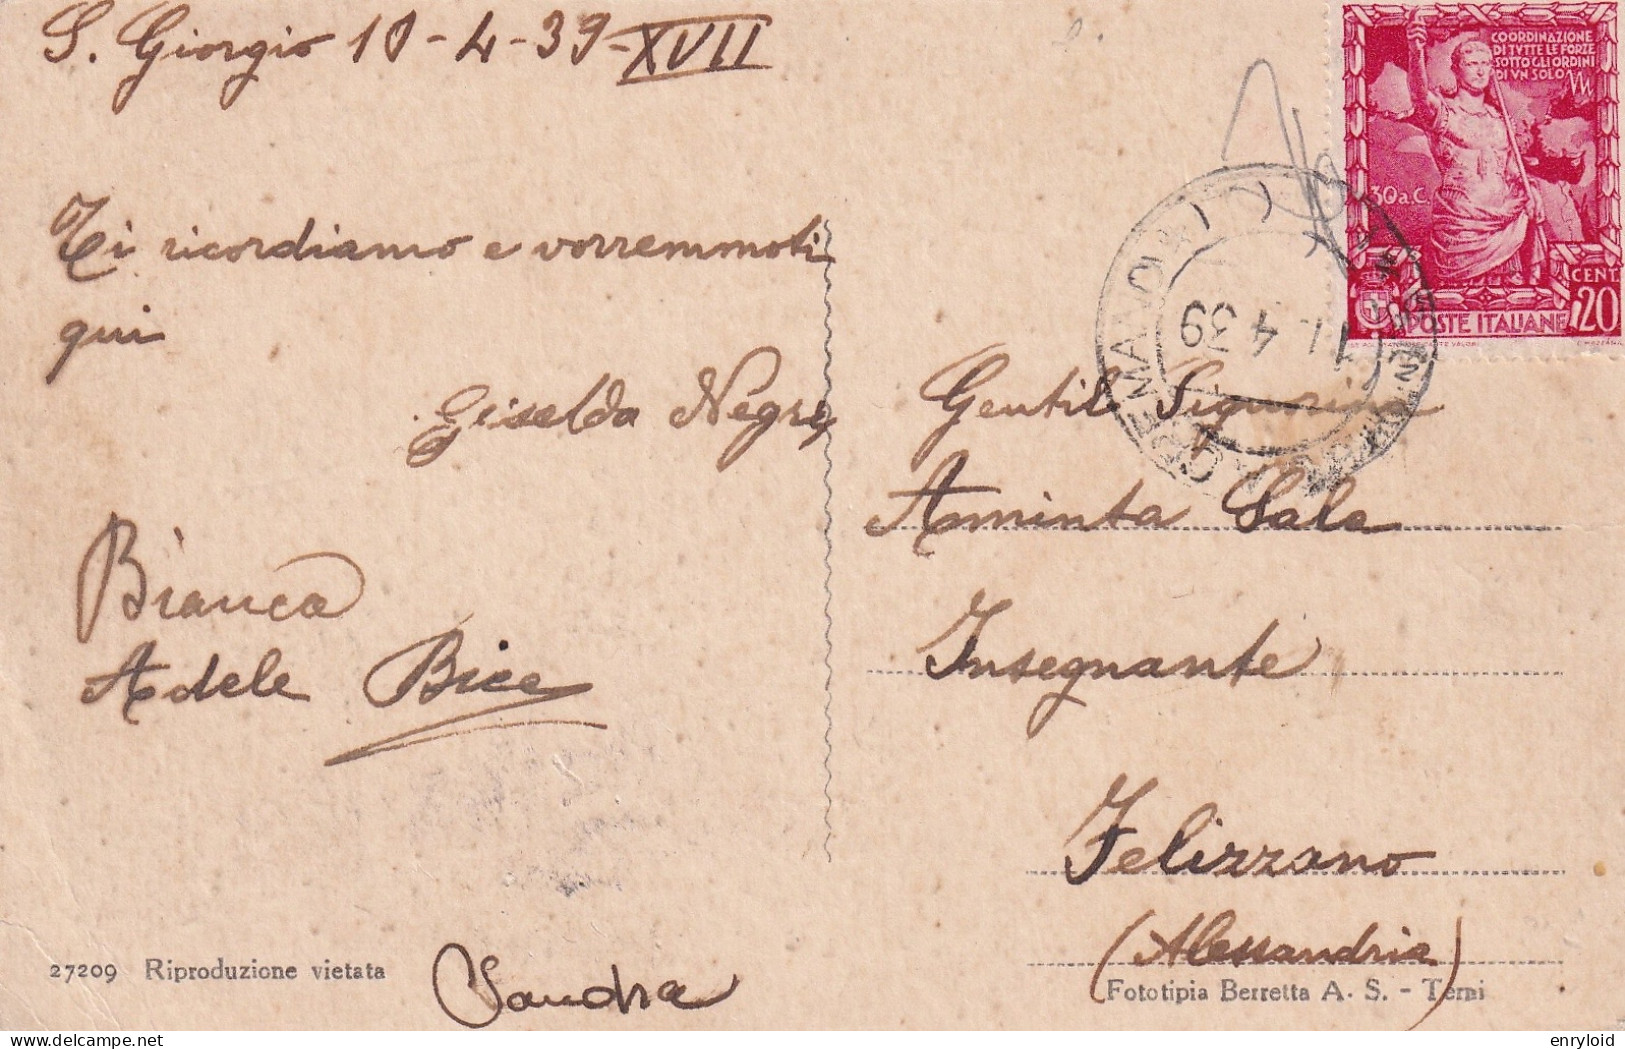 S. Giorgio 10-4-39-XVII
COORDINAZIONE
DI TVTTE LE FORZE
SOTTO GLI ORDINI
DI VN SOLO
30 a.C.
CENT.
20
POSTE ITALIANE
4 39
Ti ricordiamo e vorremmoti
qui
Giselda Negri
Bianca
Adele Bice
Sandra
Gentile Signorina
Aminta Sala
Insegnante
Felizzano
(Alessandria)
27209 Riproduzione vietata
Fototipia Berretta A. S. - Terni
enryloid